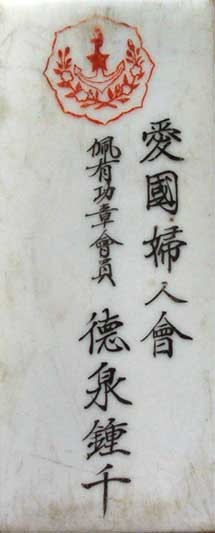 愛國婦人會
佩有功章會員
德泉鍾千